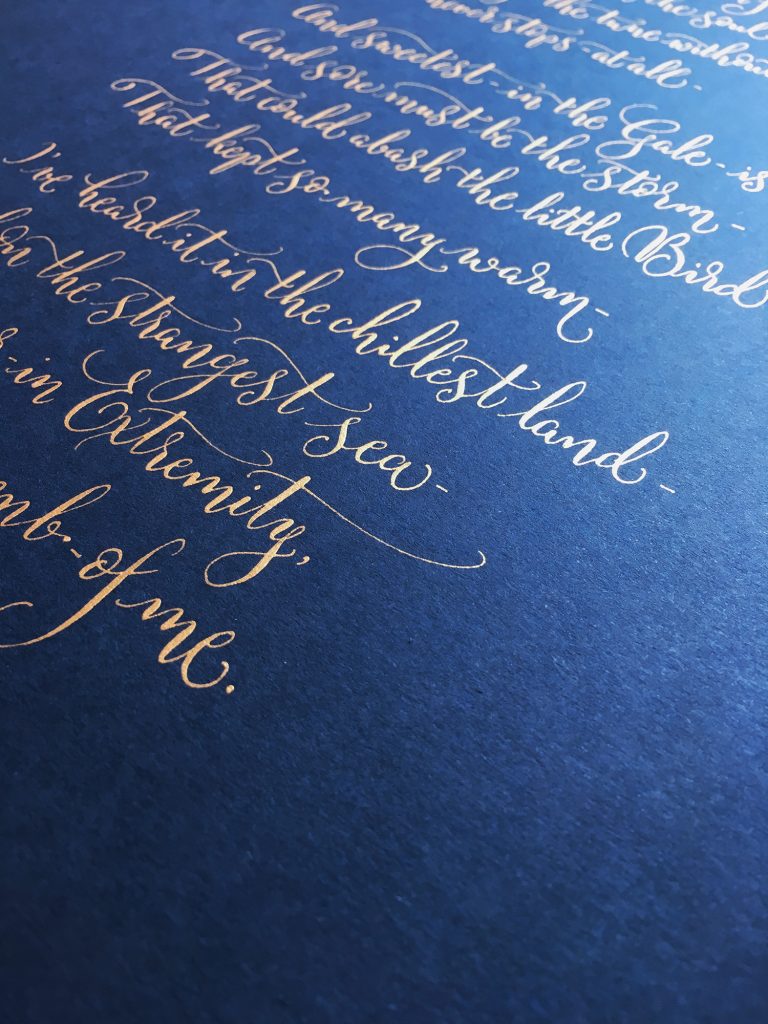 the soul
the tune withou
never stops - at all -
And sweetest - in the Gale - is
And sore must be the storm -
That could abash the little Bird
That kept so many warm -
I've heard it in the chillest land -
on the strangest sea -
in Extremity,
mb - of me.